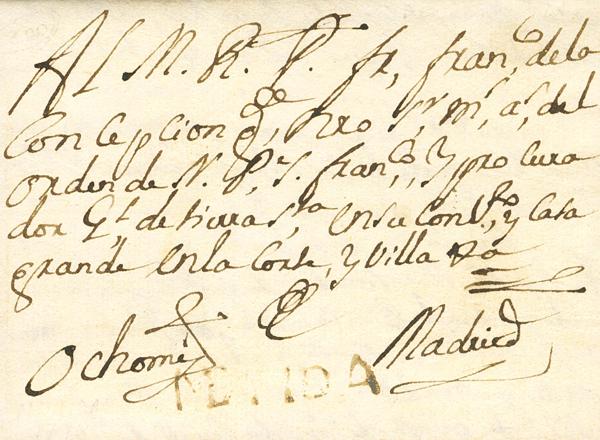 Al M. R. P. fr, franco, dela
Concepcion, Nro Sr, ms, as, del
orden de N. P. S. franco, y procura
dor Gl, de tierra Sta, en su Convto, y Casa
grande en la Corte, y Villa
Madrid